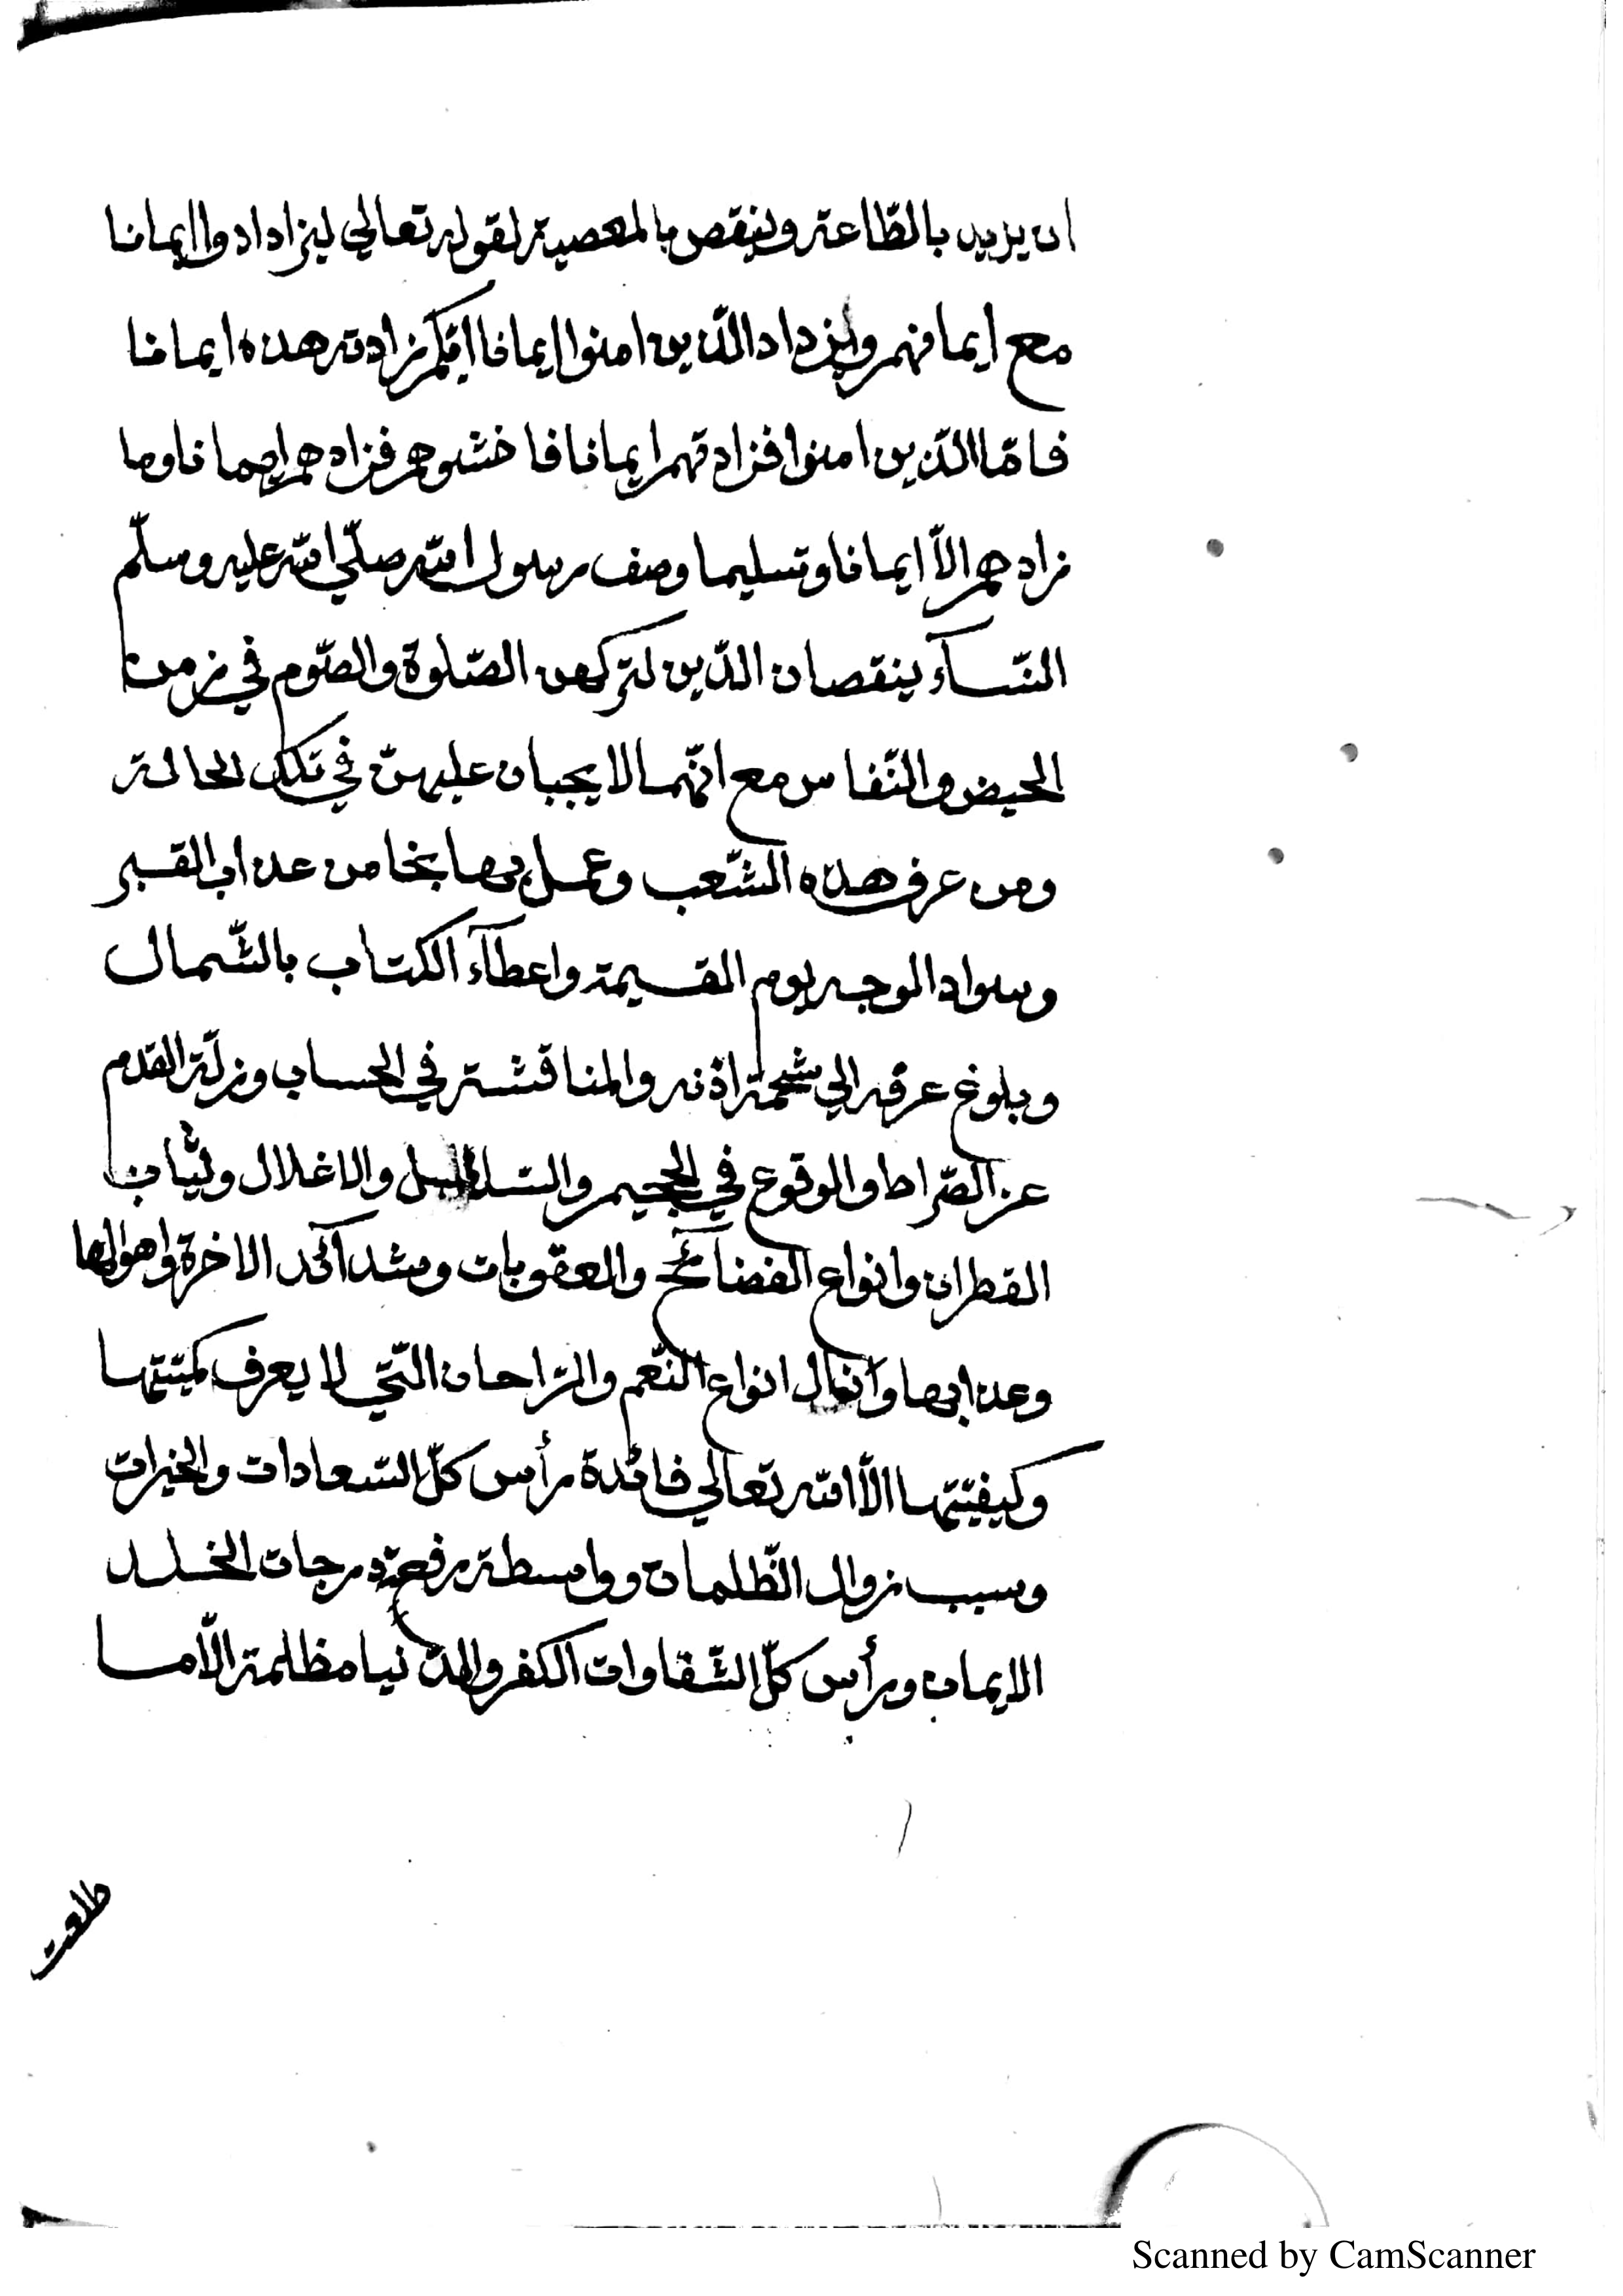 ان يزيد بالطّاعة وينقص بالمعصية لقوله تعالي ليزدادوا ايمانا
مع ايمانهم ويزداد الّذين امنوا ايمانا ايّكم زادته هذه ايمانا
فامّا الّذين امنوا فزادتهم ايمانا فاخشوهم فزادهم ايمانا وما
زادهم الّا ايمانا وتسليما وصف رسول اللّه صلّي اللّه عليه وسلّم
النّسآء بنقصان الدّين لتركهن الصّلوة والصّوم في زمن
الحيض والنّفاس مع انّهما لا يجبان عليهنّ في تلك الحالة
ومن عرف هذه الشّعب وعمل بها نجا من عذاب القبر
وسواد الوجه يوم القيمة واعطآء الكتاب بالشّمال
وبلوغ عرقه الي شحمة اذنه والمناقشة في الحساب وزلّة القدم
عن الصّراط والوقوع في الجحيم والسّلاسل والاغلال وثياب
القطران وانواع الفضآئح والعقوبات وشدآئد الاخرة واهوالها
وعذابها و انواع النّعم والرّاحات الّتي لا يعرف كميّتها
وكيفيّتها الّا اللّه تعالي فائدة رأس كلّ السّعادات والخيرات
وسبب زوال الظّلمات وواسطة رفعة درجات الخلد
الايمان ورأس كلّ الشّقاوات الكفر والدّنيا مظلمة الّا ما
طلعت
Scanned by CamScanner